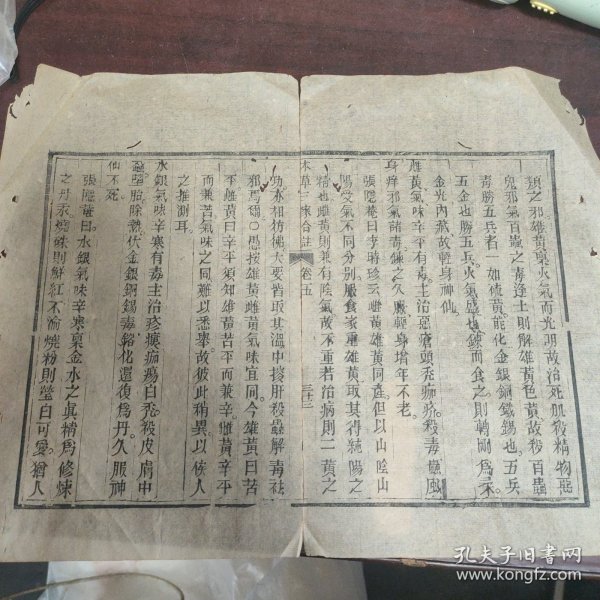 類之邪雄黃稟火氣而光明故治死肌殺精物惡
鬼邪氣百蟲之毒逢土則解雄黃色黃故殺百蟲
毒勝五兵者一如硫黃能化金銀銅鐵錫也五兵
五金也勝五兵火氣盛也鍊而食之則轉剛為柔
金光內蘊故輕身神仙
雌黃氣味辛平有毒主治惡瘡頭禿痂疥殺毒蟲蝨
身癢邪氣諸毒鍊之久服輕身增年不老
張隱菴曰李時珍云雌黃雄黃同產但以山陰山
陽受氣不同分別服食家重雄黃取其得純陽之
精也雌黃則兼有陰氣故不重若治病則二黃之
本草三家合註 卷五 三十三
功亦相彷彿大要皆取其溫中搜肝殺蟲解毒祛
邪焉爾○愚按雄黃雌黃氣味宜同今雄黃曰苦
平雌黃曰辛平須知雄黃苦平而兼辛雌黃辛平
而兼苦氣味之同難以悉舉故彼此稍異以俟人
之推測耳
水銀氣味辛寒有毒主治疹瘻痂瘍白禿殺皮膚中
蝨墮胎除熱伏金銀銅錫毒鎔化還復為丹久服神
仙不死
張隱菴曰水銀氣味辛寒稟金水之真精為修煉
之丹汞燒硃則鮮紅不渝燒粉則瑩白可愛猶人
孔夫子旧书网
www.kongfz.com